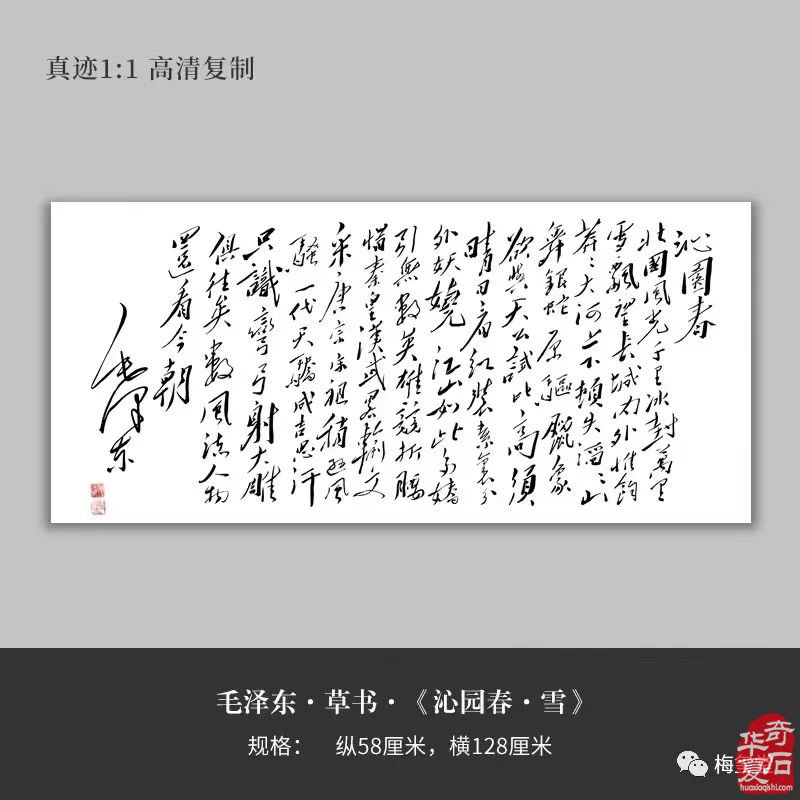 真迹1:1 高清复制
沁園春
北國風光千里冰封萬里
雪飄望長城内外惟餘
莽〻大河上下頓失滔〻山
舞銀蛇原驅臘象
欲與天公試比高須
晴日看紅裝素裹分
外妖嬈江山如此多嬌
引無數英雄競折腰
惜秦皇漢武略輸文
采唐宗宋祖稍遜風
騷一代天驕成吉思汗
只識彎弓射大雕
俱往矣數風流人物
還看今朝
毛澤東
毛泽东·草书·《沁园春·雪》
规格： 纵58厘米，横128厘米
梅
华夏奇石
huaxiaqishi.com